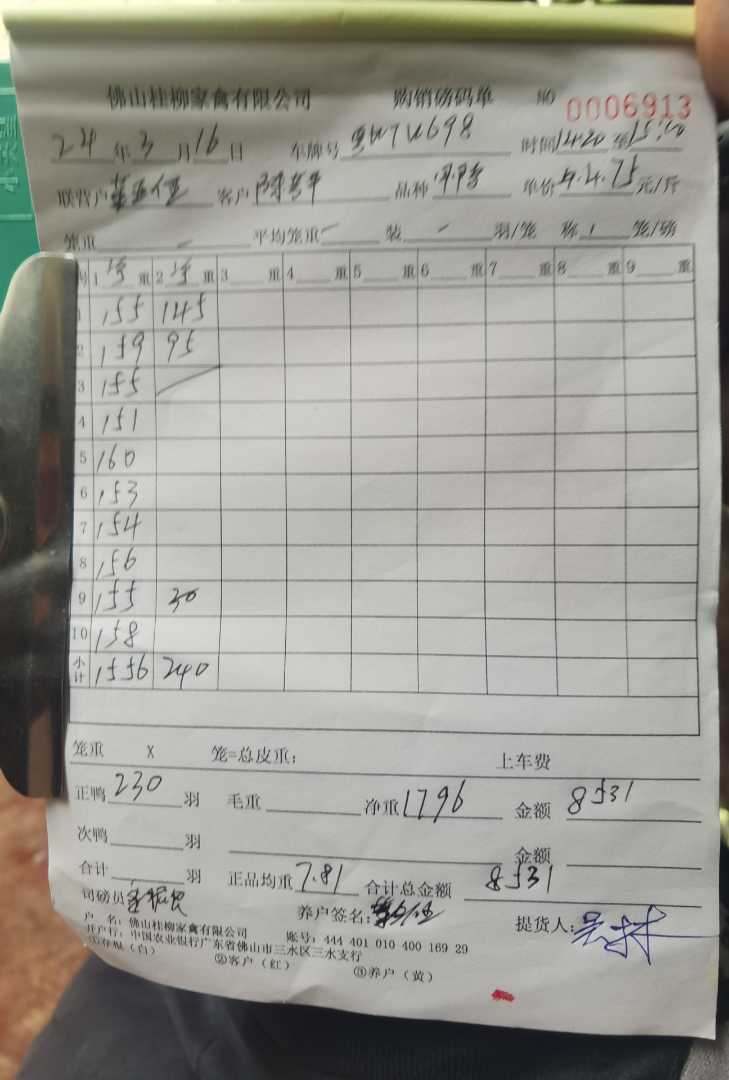 佛山桂柳家禽有限公司 购销磅码单 NO 0006913
24年3月16日 车牌号 时间14:20至15:20
联营户 客户 品种 单价4.75元/斤
笼重 - 平均笼重 - 装 - 羽/笼 称 1 笼/磅
1 重 2 重 3 重 4 重 5 重 6 重 7 重 8 重 9 重
1 155 145
2 159 95
3 155
4 151
5 160
6 153
7 154
8 156
9 155 30
10 158
小计 1556 240
笼重 X 笼=总皮重: 上车费
正鸭 230 羽 毛重 净重 1796 金额 8531
次鸭 羽 金额
合计 羽 正品均重 7.81 合计总金额 8531
司磅员 养户签名: 提货人:
户 名: 佛山桂柳家禽有限公司 账号: 444 401 010 400 169 29
开户行: 中国农业银行广东省佛山市三水区三水支行
①存根(白) ②客户(红) ③养户(黄)